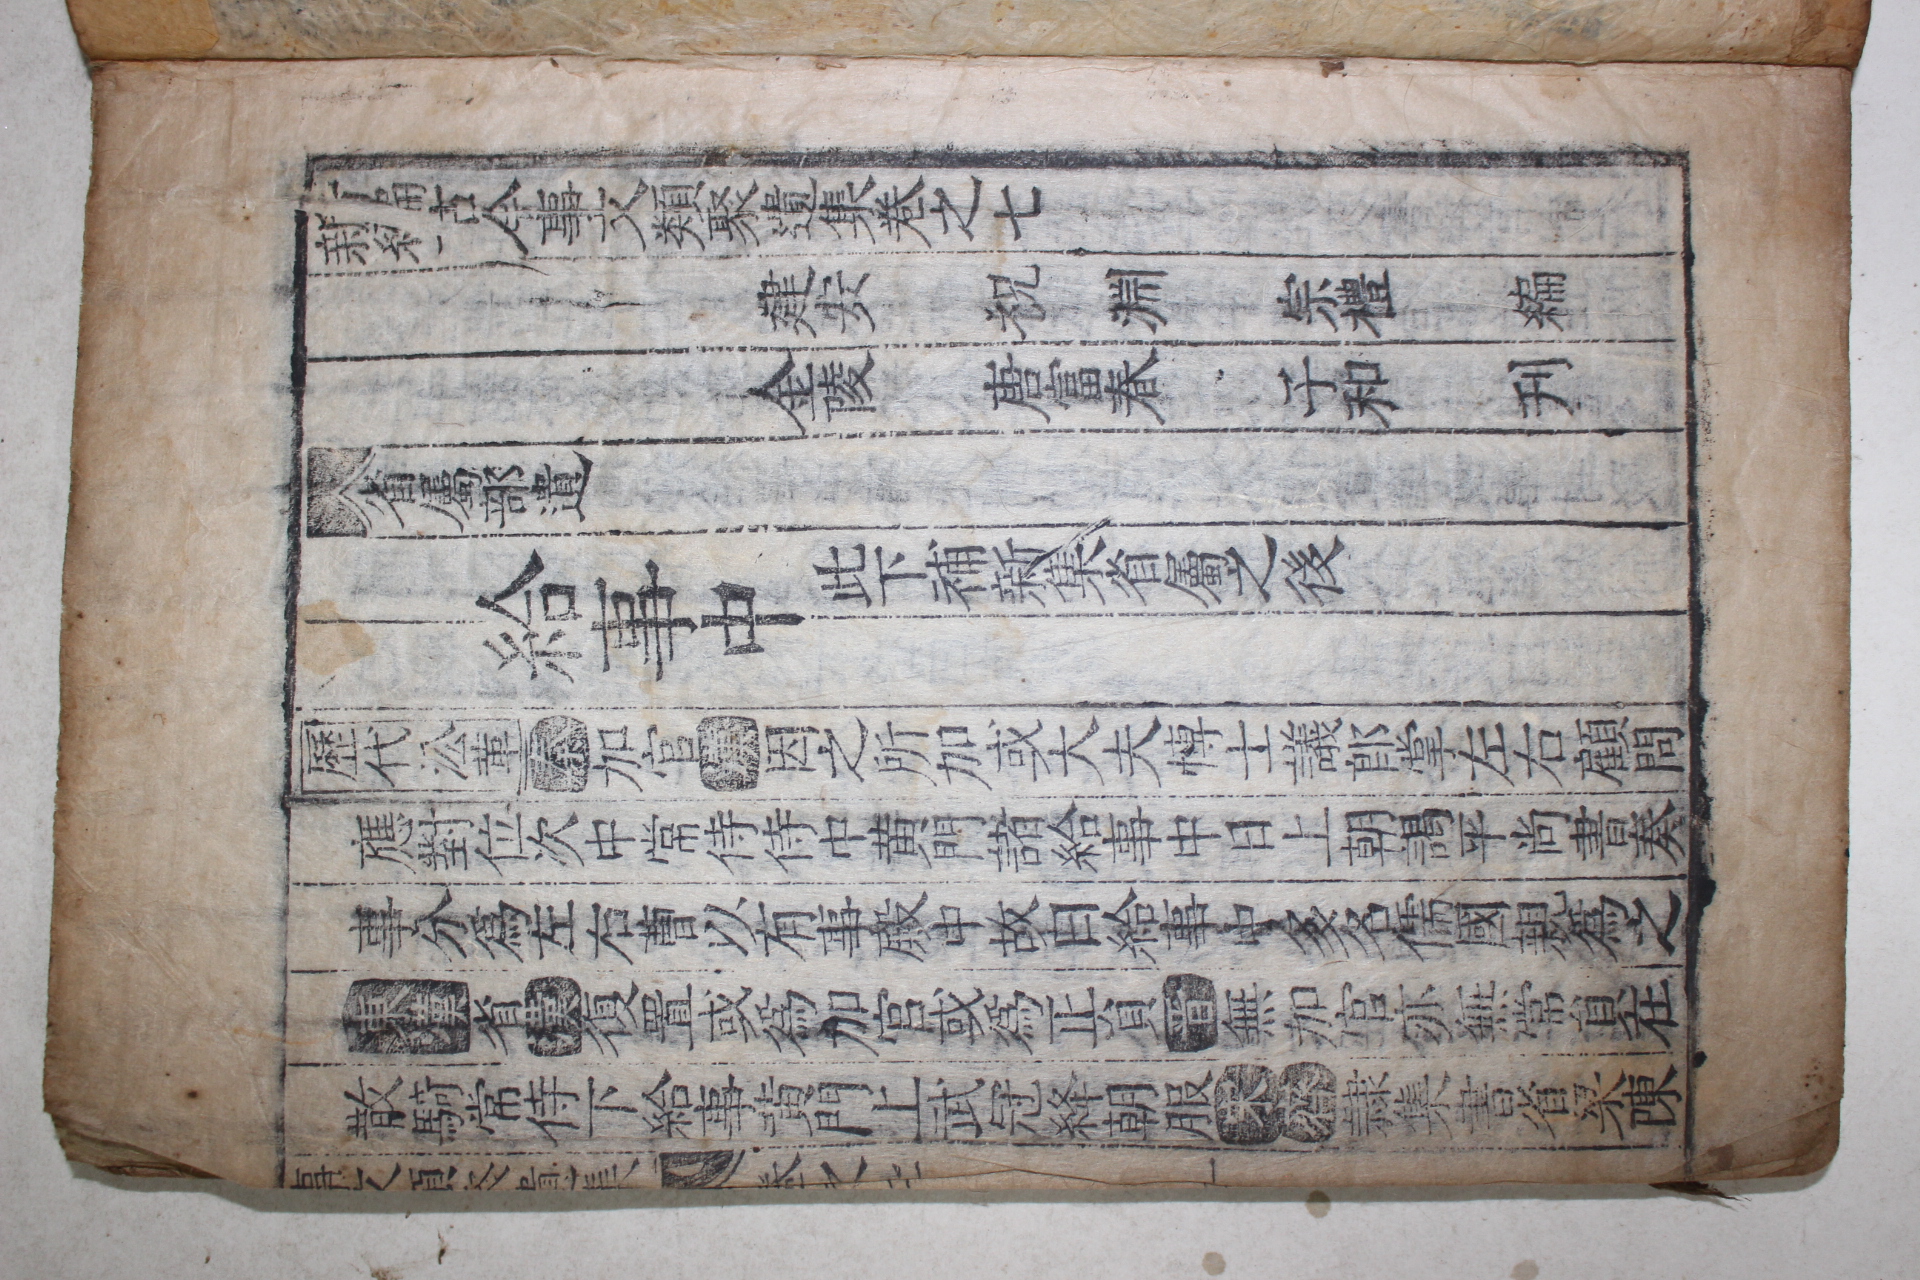 新編古今事文類聚遺集卷之七
建安 祝 淵 宗禮 編
金陵 唐富春 子和 刊
省屬部遺
給事中 此下補新集省屬之後
歷代沿革 秦 加官 漢 因之所加或大夫博士議郎掌左右顧問
應對位次中常侍侍中黃門諸給事中日上朝謁平尚書奏
事分爲左右曹以有事殿中故曰給事中多名儒國親爲之
東漢省魏復置或爲加官或爲正員晉無加官亦無常員在
散騎常侍下給事黃門上武冠絳朝服宋齊隸集書省梁陳